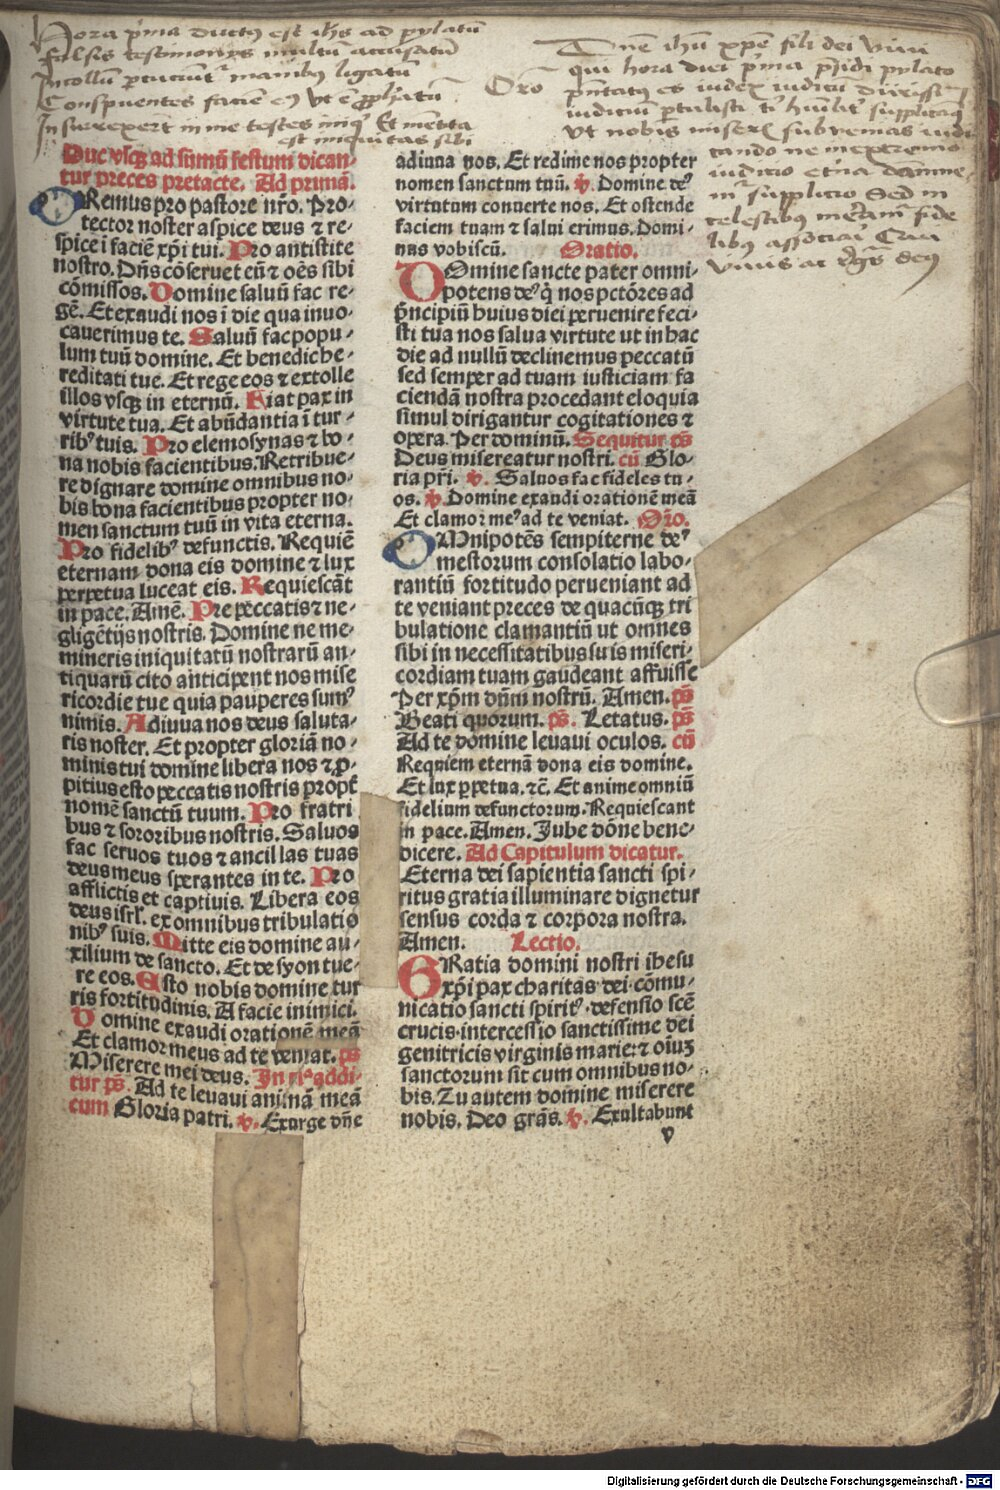 Hora p̄ma ductus est ihs̄ ad pylatū
falsis testimonijs multū accusatū
In collū p̄cuciunt manibꝫ ligatū
Conspuentes faciē eiꝰ vt ē ꝓph̄atū
Insurrexert̄ in me testes iniqͥ Et mētita
est iniquitas sibi
Orō
Dn̄e ihū xp̄e fili dei viui
qui hora diei p̄ma p̄sidi pylato
iudiciū ꝑtulisti
vt nobis miseris subvenias iudi
cando ne in extremo
iudicio et̄na damne
mr̄ supplicio Sed in
celestibus
libus associari
viuis ac
Duc vsqꝫ ad sūmū festum dican-
tur preces pretacte. Ad primā.
ORemus pro pastore nr̄o. Pro-
tector noster aspice deus ⁊ re-
spice ī faciē xp̄i tui. Pro antistite
nostro. Dn̄s cōseruet eū ⁊ oēs sibi
cōmissos. Domine saluū fac re-
gē. Et exaudi nos ī die qua inuo-
cauerimus te. Saluū fac popu-
lum tuū domine. Et benedic he-
reditati tue. Et rege eos ⁊ extolle
illos vsqꝫ in eternū. Fiat pax in
virtute tua. Et abūdantia ī tur-
ribꝰ tuis. Pro elemosynas ⁊ bo-
na nobis facientibus. Retribue-
re dignare domine omnibus no-
bis bona facientibus propter no-
men sanctum tuū in vita eterna.
Pro fidelibꝰ defunctis. Requiē
eternam dona eis domine ⁊ lux
perpetua luceat eis. Requiescāt
in pace. Amē. Pre peccatis ⁊ ne-
gligētijs nostris. Domine ne me-
mineris iniquitatū nostrarū an-
tiquarū cito anticipent nos mise
ricordie tue quia pauperes sumꝰ
nimis. Adiuua nos deus saluta-
ris noster. Et propter gloriā no-
minis tui domine libera nos ⁊ ꝓ-
pitius esto peccatis nostris propt̄
nomē sanctū tuum. Pro fratri
bus ⁊ sororibus nostris. Saluos
fac seruos tuos ⁊ ancillas tuas
deus meus sperantes in te. Pro
afflictis et captiuis. Libera eos
deus isrl̄. ex omnibus tribulatio
nibꝰ suis. Mitte eis domine au-
xilium de sancto. Et de syon tue-
re eos. Esto nobis domine tur
ris fortitudinis. A facie inimici.
Domine exaudi orationē meā
Et clamor meus ad te veniat. ps̄
Miserere mei deus. In qͣ addi-
tur ps̄. Ad te leuaui animā meā
cum Gloria patri. v. Exurge dn̄e
adiuua nos. Et redime nos propter
nomen sanctum tuū. v. Domine deꝰ
virtutum conuerte nos. Et ostende
faciem tuam ⁊ salui erimus. Domi-
nus vobiscū. Oratio.
DOmine sancte pater omni-
potens deꝰ q̇ nos pctōres ad
p̄ncipiū huius diei peruenire feci-
sti tua nos salua virtute ut in hac
die ad nullū declinemus peccatū
sed semper ad tuam iusticiam fa
ciendā nostra procedant eloquia
simul dirigantur cogitationes ⁊
opera. Per dominū. Sequitur ps̄
Deus misereatur nostri. cū Glo-
ria pr̄i. v. Saluos fac fideles tu-
os. v. Domine exaudi orationē meā
Et clamor meꝰ ad te veniat. Orō.
OMnipotēs sempiterne deꝰ
mestorum consolatio labo-
rantiū fortitudo perueniant ad
te veniant preces de quacūqꝫ tri
bulatione clamantiū ut omnes
sibi in necessitatibus suis miseri-
cordiam tuam gaudeant affuisse
Per xp̄m dn̄m nostrū. Amen. ps̄
Beati quorum. ps̄. Letatus. ps̄
Ad te domine leuaui oculos. cū
Requiem eternā dona eis domine.
Et lux ꝑpetua. ⁊c̄. Et anime omniū
fidelium defunctorum. Requiescant
in pace. Amen. Jube dōne bene-
dicere. Ad Capitulum dicatur.
Eterna dei sapientia sancti spi-
ritus gratia illuminare dignetur
sensus corda ⁊ corpora nostra.
Amen. Lectio.
GRatia domini nostri ihesu
xp̄i pax charitas dei cōmu-
nicatio sancti spiritꝰ defensio scē
crucis intercessio sanctissime dei
genitricis virginis marie: ⁊ oīuꝫ
sanctorum sit cum omnibus no-
bis. Tu autem domine miserere
nobis. Deo grās. v. Exultabunt
v
Digitalisierung gefördert durch die Deutsche Forschungsgemeinschaft - DFG